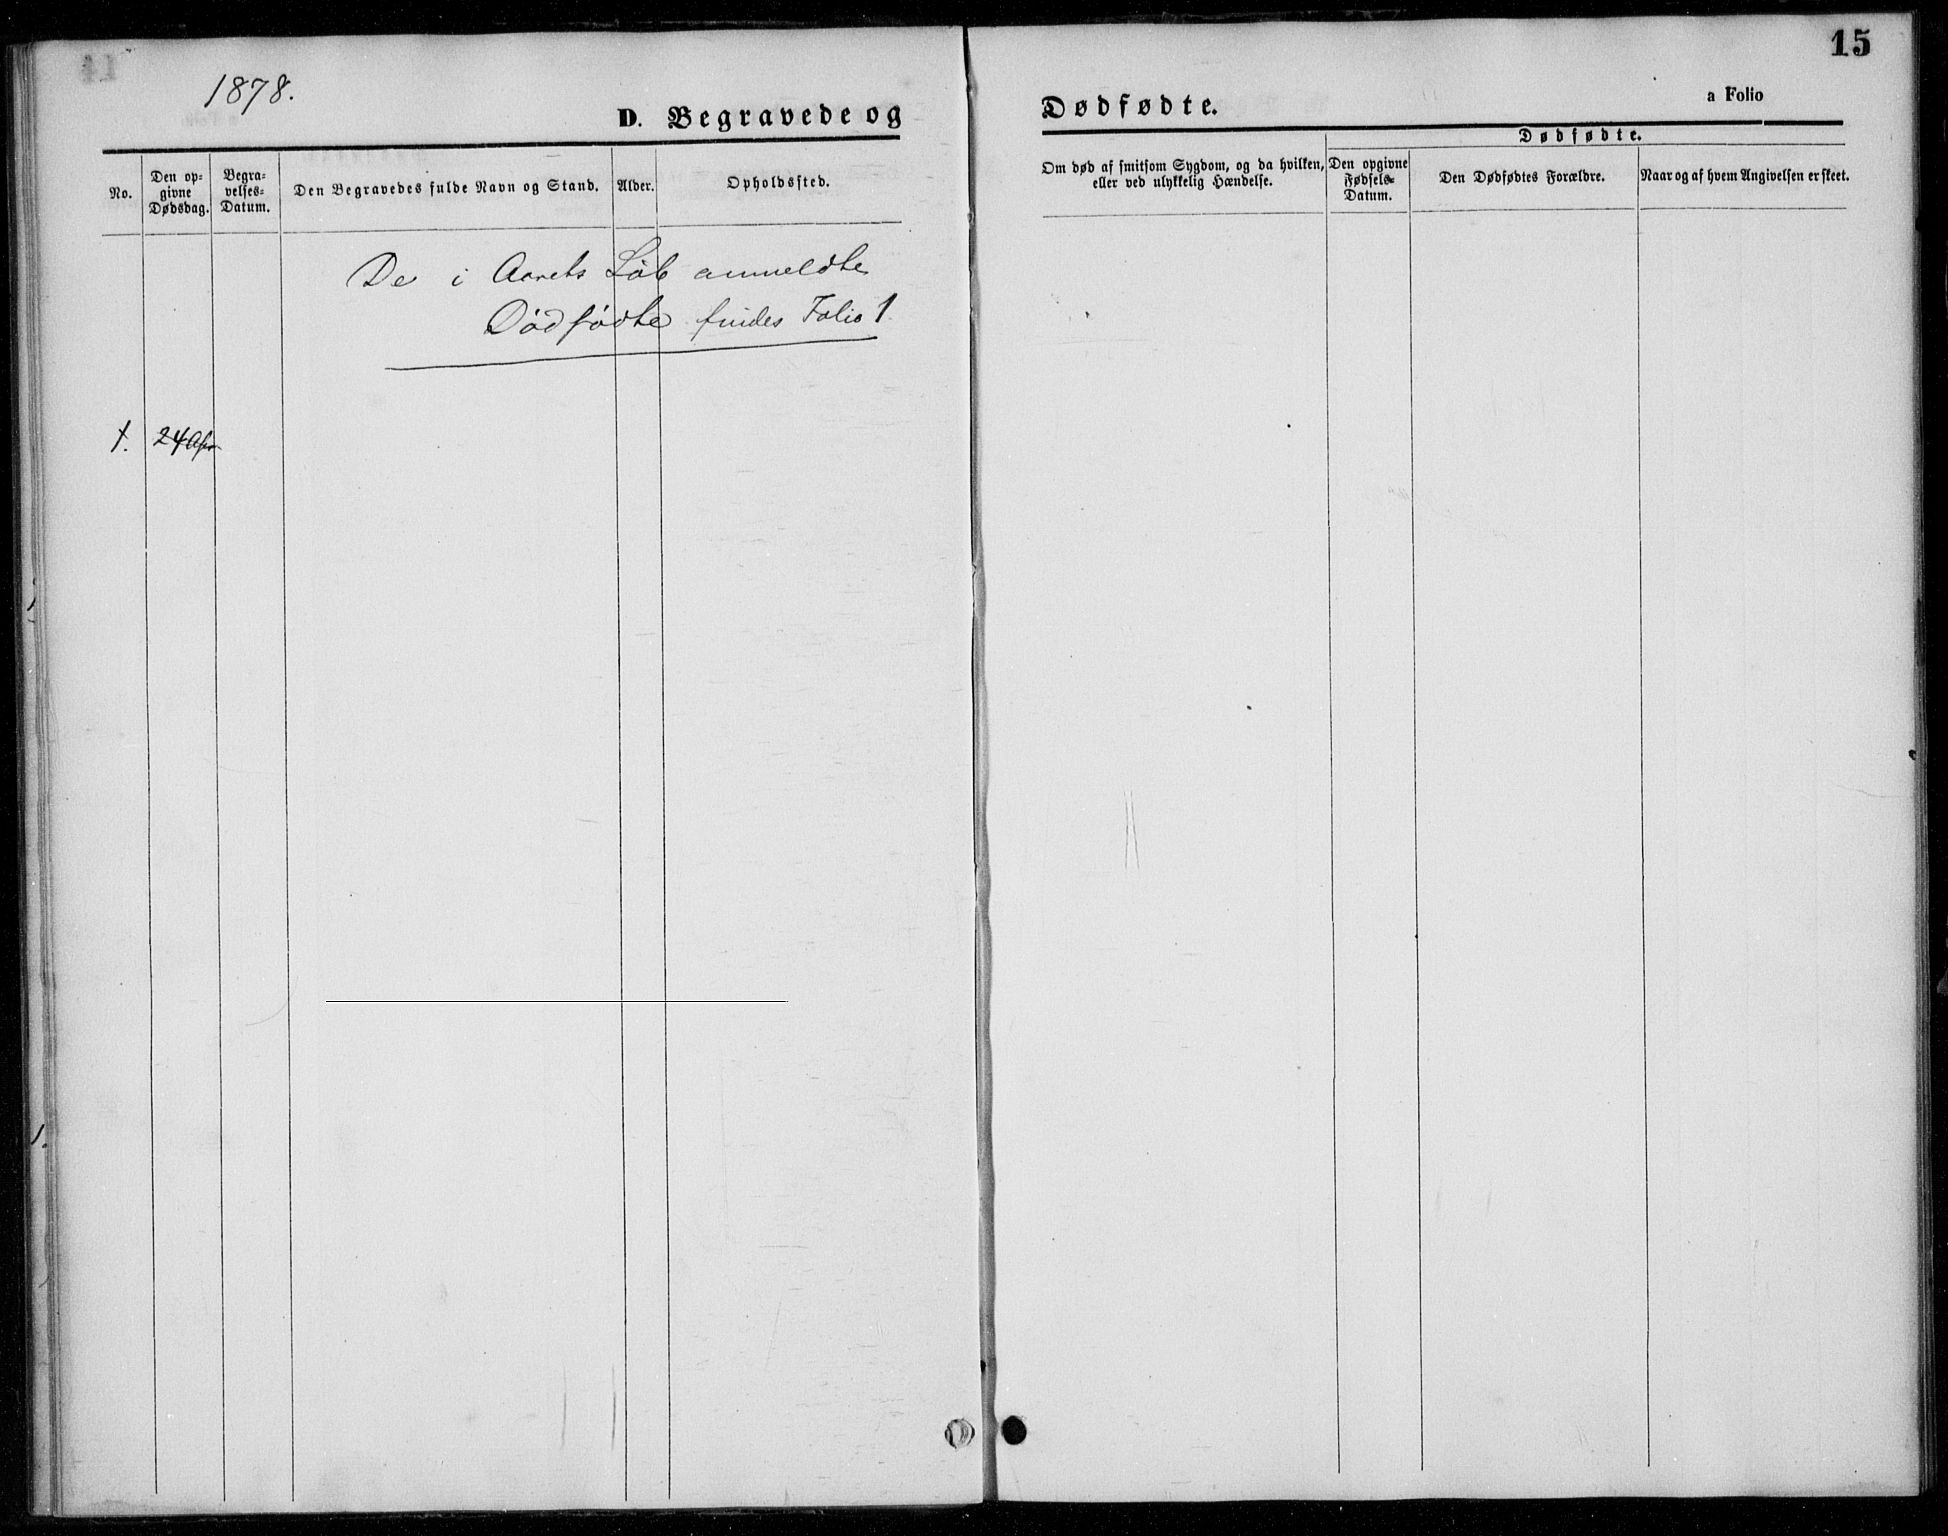 15
1878.
D. Begravede og Dødfødte.
a Folio
No.
Den op-
givne
Dødsdag.
Begra-
velses-
Datum.
Den Begravedes fulde Navn og Stand.
Alder.
Opholdssted.
Om død af smitsom Sygdom, og da hvilken,
eller ved ulykkelig Hændelse.
Dødfødte.
Den opgivne
Fødsels-
Datum.
Den Dødfødtes Forældre.
Naar og af hvem Angivelsen er skeet.
De i Aarets Løb anmeldte
Dødfødte findes Folio 1
1. 24 Apr